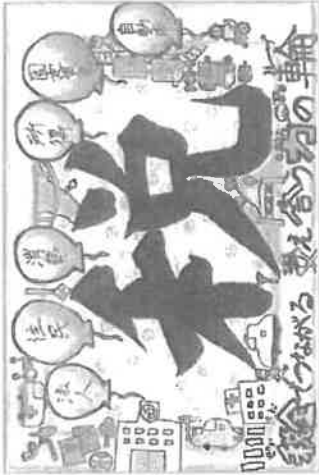 税
税金でつながる 支え合う の輪
自動車
所得
消費
住民
法人